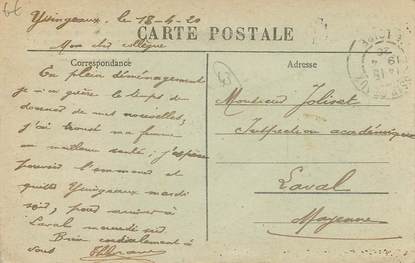 6€
Yssingeaux, le 18-4-20
CARTE POSTALE
Mon cher collègue
Correspondance
En plein déménagement
je n'ai guère le temps de
donner de mes nouvelles,
j'ai trouvé ma femme
en meilleure santé; j'espère
pouvoir l'emmener et
quitter Yssingeaux mardi
soir, pour arriver à
Laval mercredi soir
Bien cordialement à
vous
Adresse
43
Monsieur Joliset
Inspection académique
Laval
Mayenne